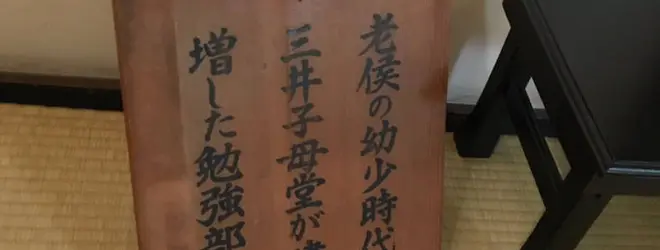 老侯の幼少時代
三井子母堂が
増した勉強部